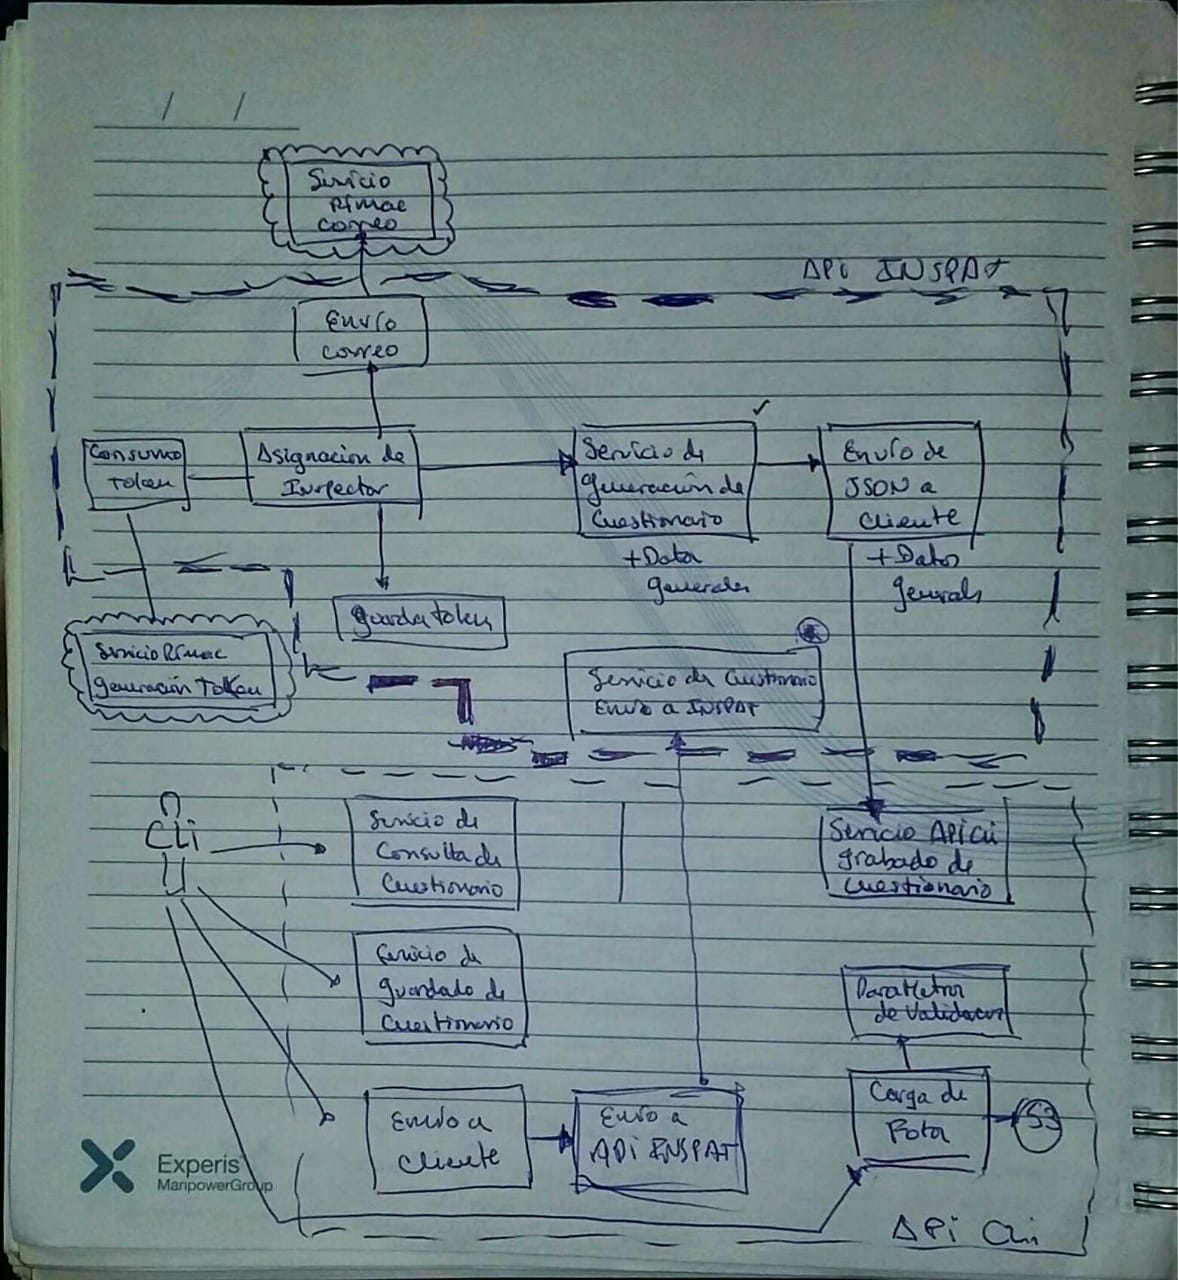 / /
Servicio
Rimac
correo
API INSPAT
Envío
correo
Consumo
Token
Asignacion de
Inspector
Servicio de
generación de
Cuestionario
+ Data
generales
Envío de
JSON a
cliente
+ Datos
generals
guarda token
Servicio Rimac
generación Token
Servicio de Cuestionario
Envio a INSPAT
Cli
Servicio de
Consulta de
Cuestionario
Servicio API Cli
grabado de
Cuestionario
Servicio de
guardado de
Cuestionario
Parametros
de Validacion
Envio a
cliente
Envio a
API INSPAT
Carga de
Fotos
S3
Experis
ManpowerGroup
API Cli